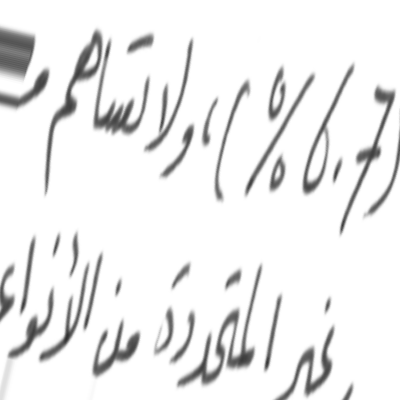 (6.7%)، ولا تساهم
غير المتجددة من الأنواع